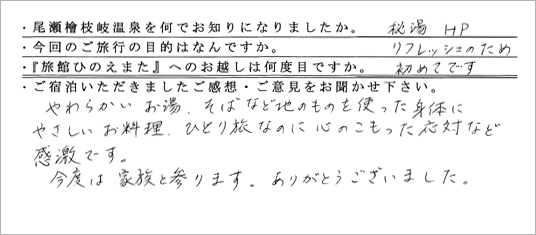 ・尾瀬檜枝岐温泉を何でお知りになりましたか。 秘湯 HP
・今回のご旅行の目的はなんですか。 リフレッシュのため
・『旅館ひのえまた』へのお越しは何度目ですか。 初めてです
・ご宿泊いただきましたご感想・ご意見をお聞かせ下さい。
やわらかい お湯、そばなど地のものを使った身体に
やさしい お料理、ひとり旅なのに 心のこもった応対など
感激です。
今度は 家族と参ります。ありがとうございました。